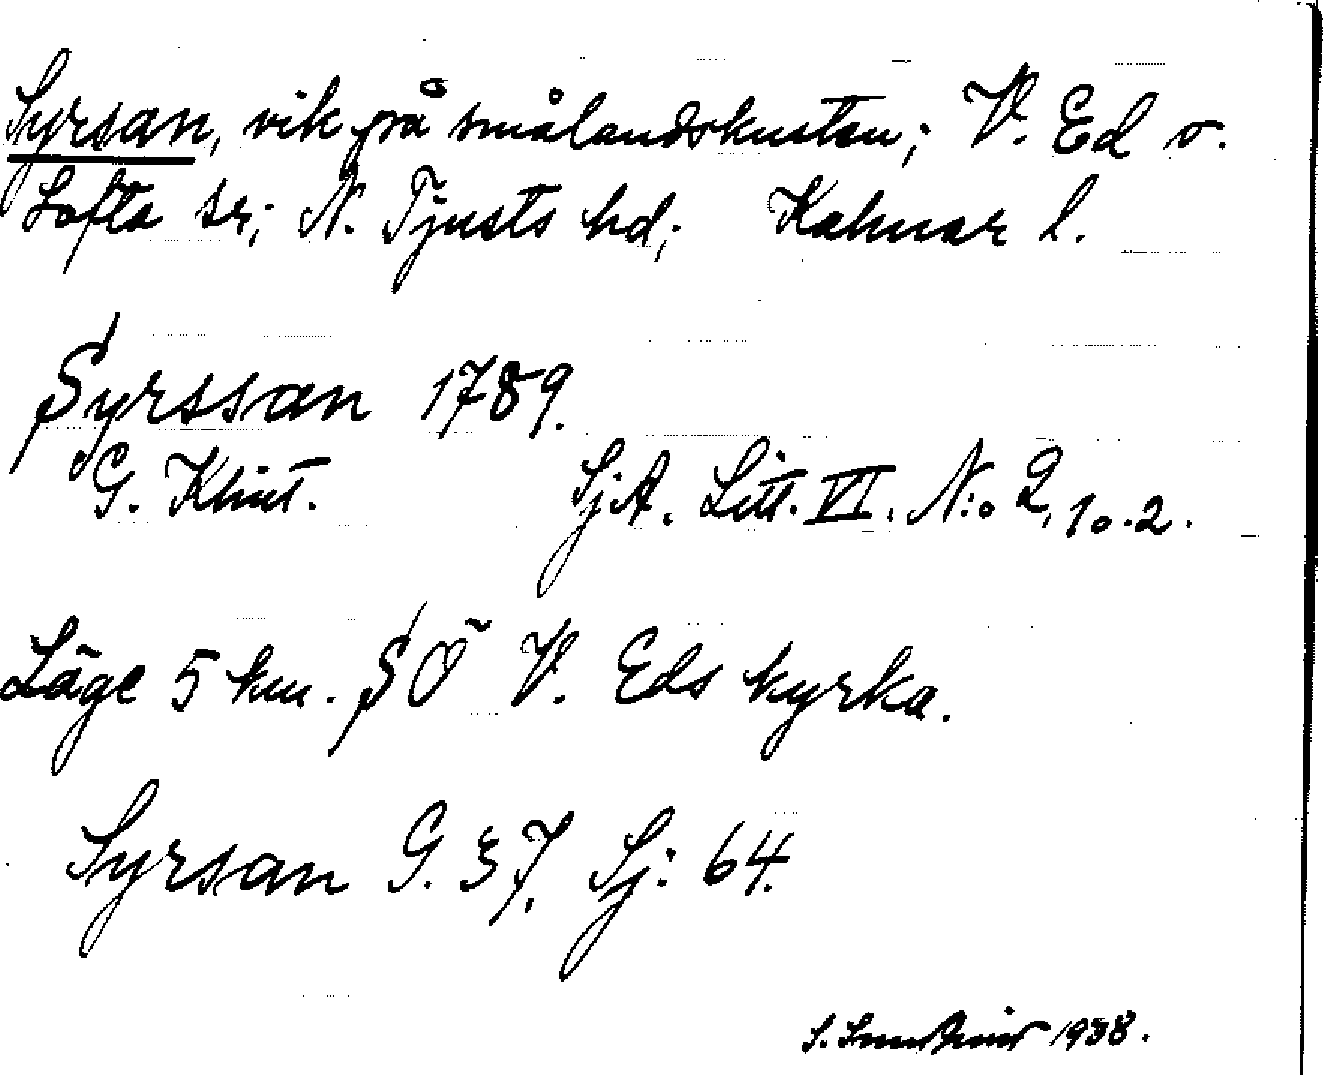 Syrsan, vik på smålandskusten; V. Ed o.
Lofta sr; N. Tjusts hd; Kalmar l.
Syrssan 1789.
G. Klint. SjA. Litt. VI. N:o 2, 1o.2.
Läge 5 km. SÖ V. Eds kyrka.
Syrsan G. 37, Sj: 64.
S. 1938.